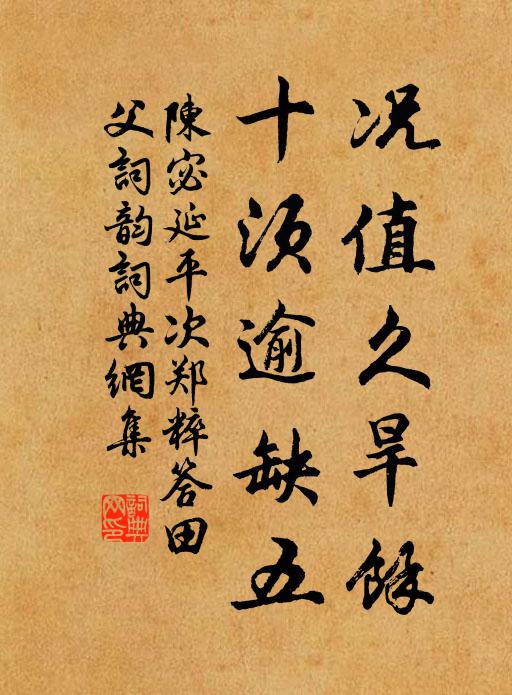 况值久旱餘
十须逾缺五
陳宓延平次郑粹答田
父詞韵詞典網集
詞典
网印